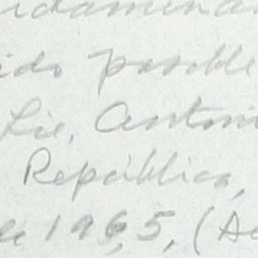 ido posible
Lic. Antoni
República,
1965, (A